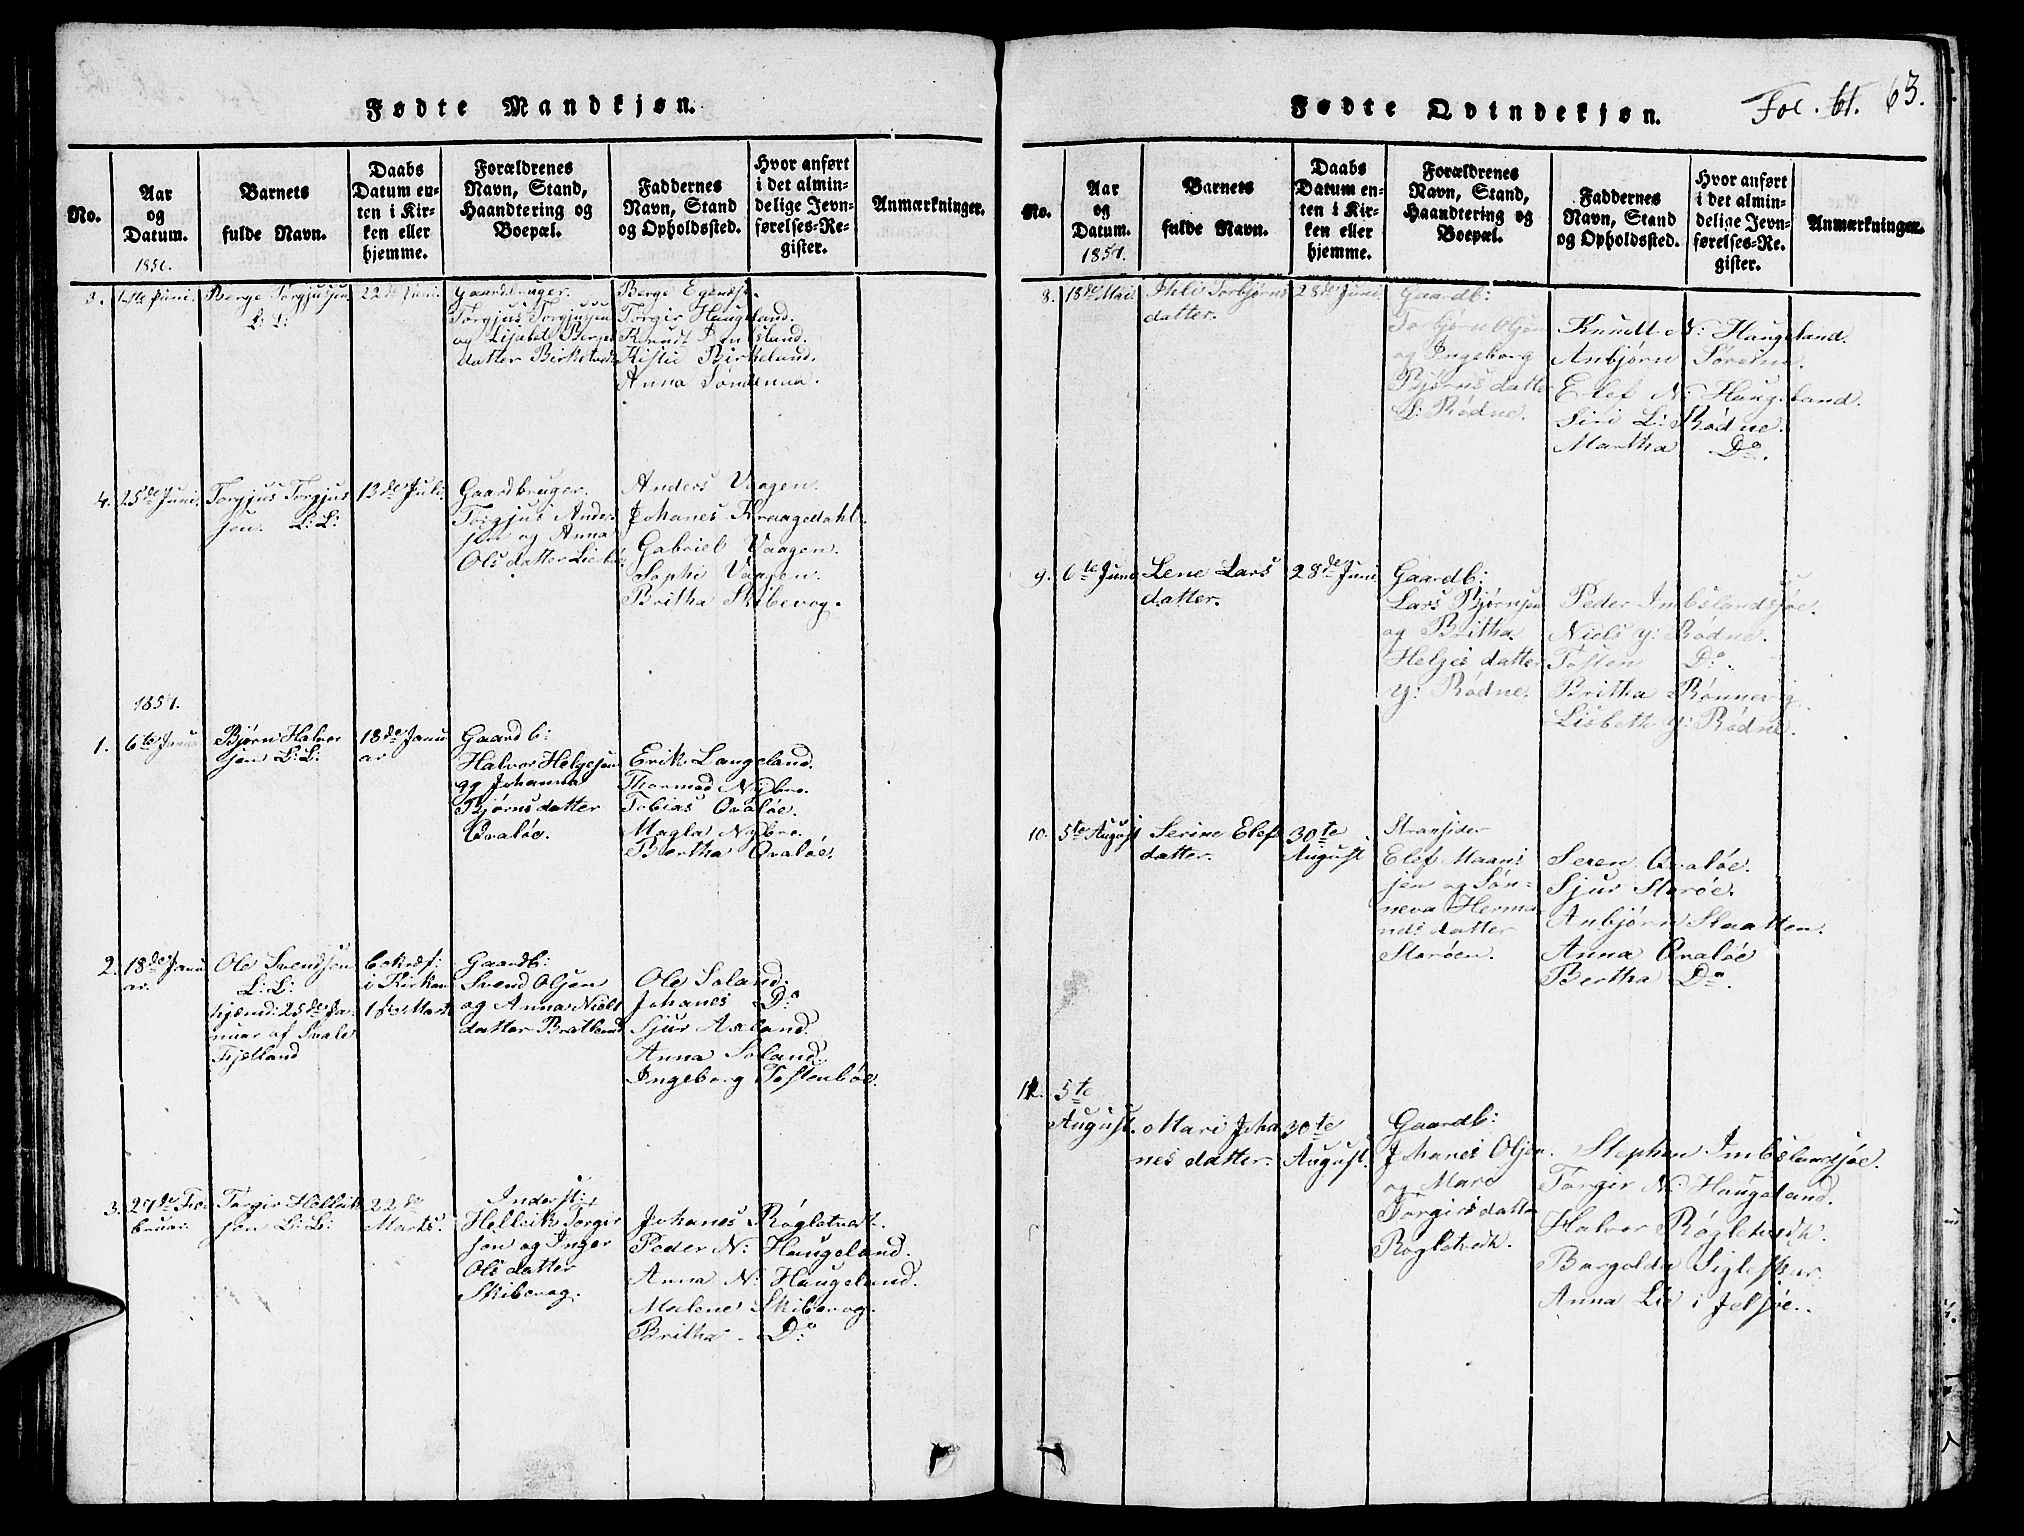 Fødte Mandkjøn.
No.
Aar
og
Datum.
Barnets
fulde Navn.
Daabs
Datum en-
ten i Kir-
ken eller
hjemme.
Forældrenes
Navn, Stand,
Haandtering og
Boepæl.
Faddernes
Navn, Stand
og Opholdssted.
Hvor anført
i det almin-
delige Jevn-
førelses-Re-
gister.
Anmærkninger.
3. Juni.
Berge Torgjusjen
L: L:
22de Juni.
Gaardbruger.
Torgjus Torgjusjen
og Lisabet Berges
datter
Berge
Torgir Haugeland.
Knudt
Birkeland.
Anna Søndenaa.
4. 25de Juni.
Torgjus Torgjus
jen. L: L:
13de Juli.
Gaardbruger.
Torgjus Anders
jen og Anna
Ols datter
Anders Vaagen.
Johanes Kraagedahl.
Gabriel Vaagen.
Sophi Vaagen.
Britha Skibevog.
1857.
1. 6te Janu
Bjørn Halvor
jen L: L:
18de Janu
ar
Gaardb:
Halvor Helgesen
og Johanna
Bjørns datter
Qvaløe.
Erik Langeland.
Thormod Nybro.
Tobias Qvaløe.
Magla Nybro.
Bertha Qvaløe.
2. 18de Janu
ar.
Ole Svendsen
L: L:
hjemd: 25de Ja-
nuar af
Fjelland
bekræf:
i Kirken
1ste Marts
Gaardb:
Svend Olsen
og Anna Niels
datter Bratland
Ole Soland.
Johanes Do
Sjur Axland.
Anna Soland.
Ingeborg Tostenbøe.
3. 27de Fe-
bruar.
Torgir Helleik
jen L: L:
22de
Marts.
Inderst:
Helleik Torgir
jøn og Inger
Ols datter
Skibevog.
Johanes Røgletvedt.
Peder N: Haugeland.
Anna N: Haugeland.
Malene Skibevog.
Britha - Do
Fødte Qvindekjøn.
Fol. 61. 63.
No.
Aar
og
Datum.
1857.
Barnets
fulde Navn.
Daabs
Datum en-
ten i Kir-
ken eller
hjemme.
Forældrenes
Navn, Stand,
Haandtering og
Boepæl.
Faddernes
Navn, Stand
og Opholdssted.
Hvor anført
i det almin-
delige Jevn-
førelses-Re-
gister.
Anmærkninger.
8. 18de Mai
Torbjørns
datter.
28de Juni
Gaardb:
Torbjørn Olsen
og Ingeborg
Bjørns datter
L: Rødne.
Knudt N: Haugeland.
Anbjørn
Elef N: Haugeland.
Siri L: Rødne.
Martha Do.
9. 6te Juni
Lene Lars
datter.
28de Juni
Gaardb:
Lars Bjørnsen
og Britha
Helges datter
y: Rødne.
Peder Imbslandsjøe.
Niels y: Rødne.
Tosten Do.
Britha Rønnevig.
Lisbeth y: Rødne.
10. 5te August
Serine Elef
datter.
30te
August
Stransider
Elef Maans
jen og Søn-
neva Herma
nds datter
Storøen.
Seren Qvaløe.
Sjur Storøe.
Anbjørn Skaatten.
Anna Qvaløe
Bertha Do.
11. 5te
August.
Mari Joha
nes datter.
30te
August.
Gaardb:
Johanes Olsen
og Mari
Torgirsdatter
Røgletvedt.
Stephen Imbslandsjøe.
Torgir N: Haugeland.
Halvor Røgletvedt.
Bargolda Sigleskar.
Anna Lie i Jelsøe.